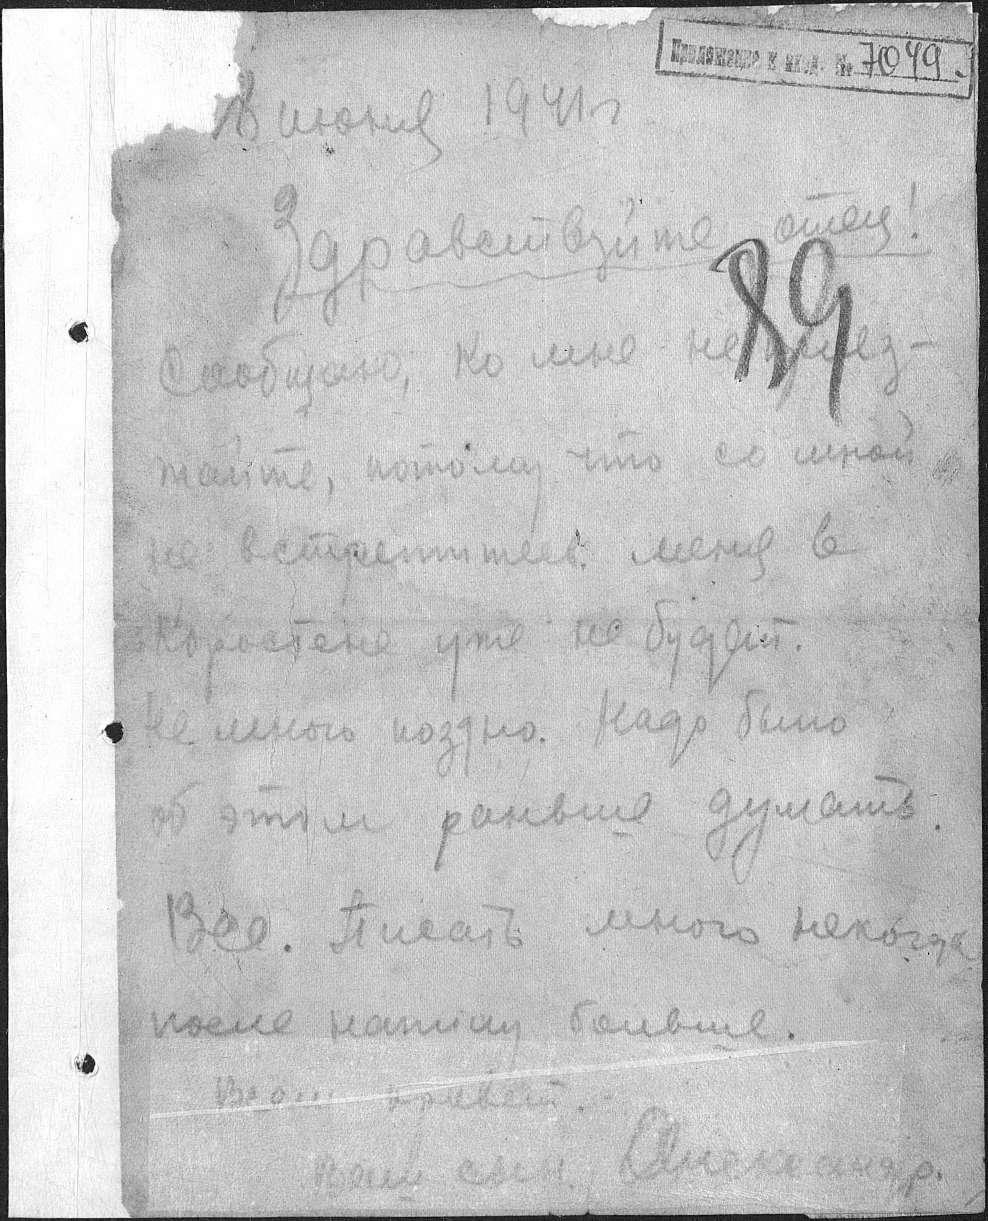 Приложение к вх.д. № 7049.
8 июня 1941г
Здравствуйте отец!
89
Сообщаю, ко мне не приез-
жайте, потому что со мной
не встретитесь. меня в
Коростене уже не будет.
Не много поздно. Надо было
об этом раньше думать.
Все. Писать много некогда
после напишу больше.
Вам привет.
Ваш сын. Александр.